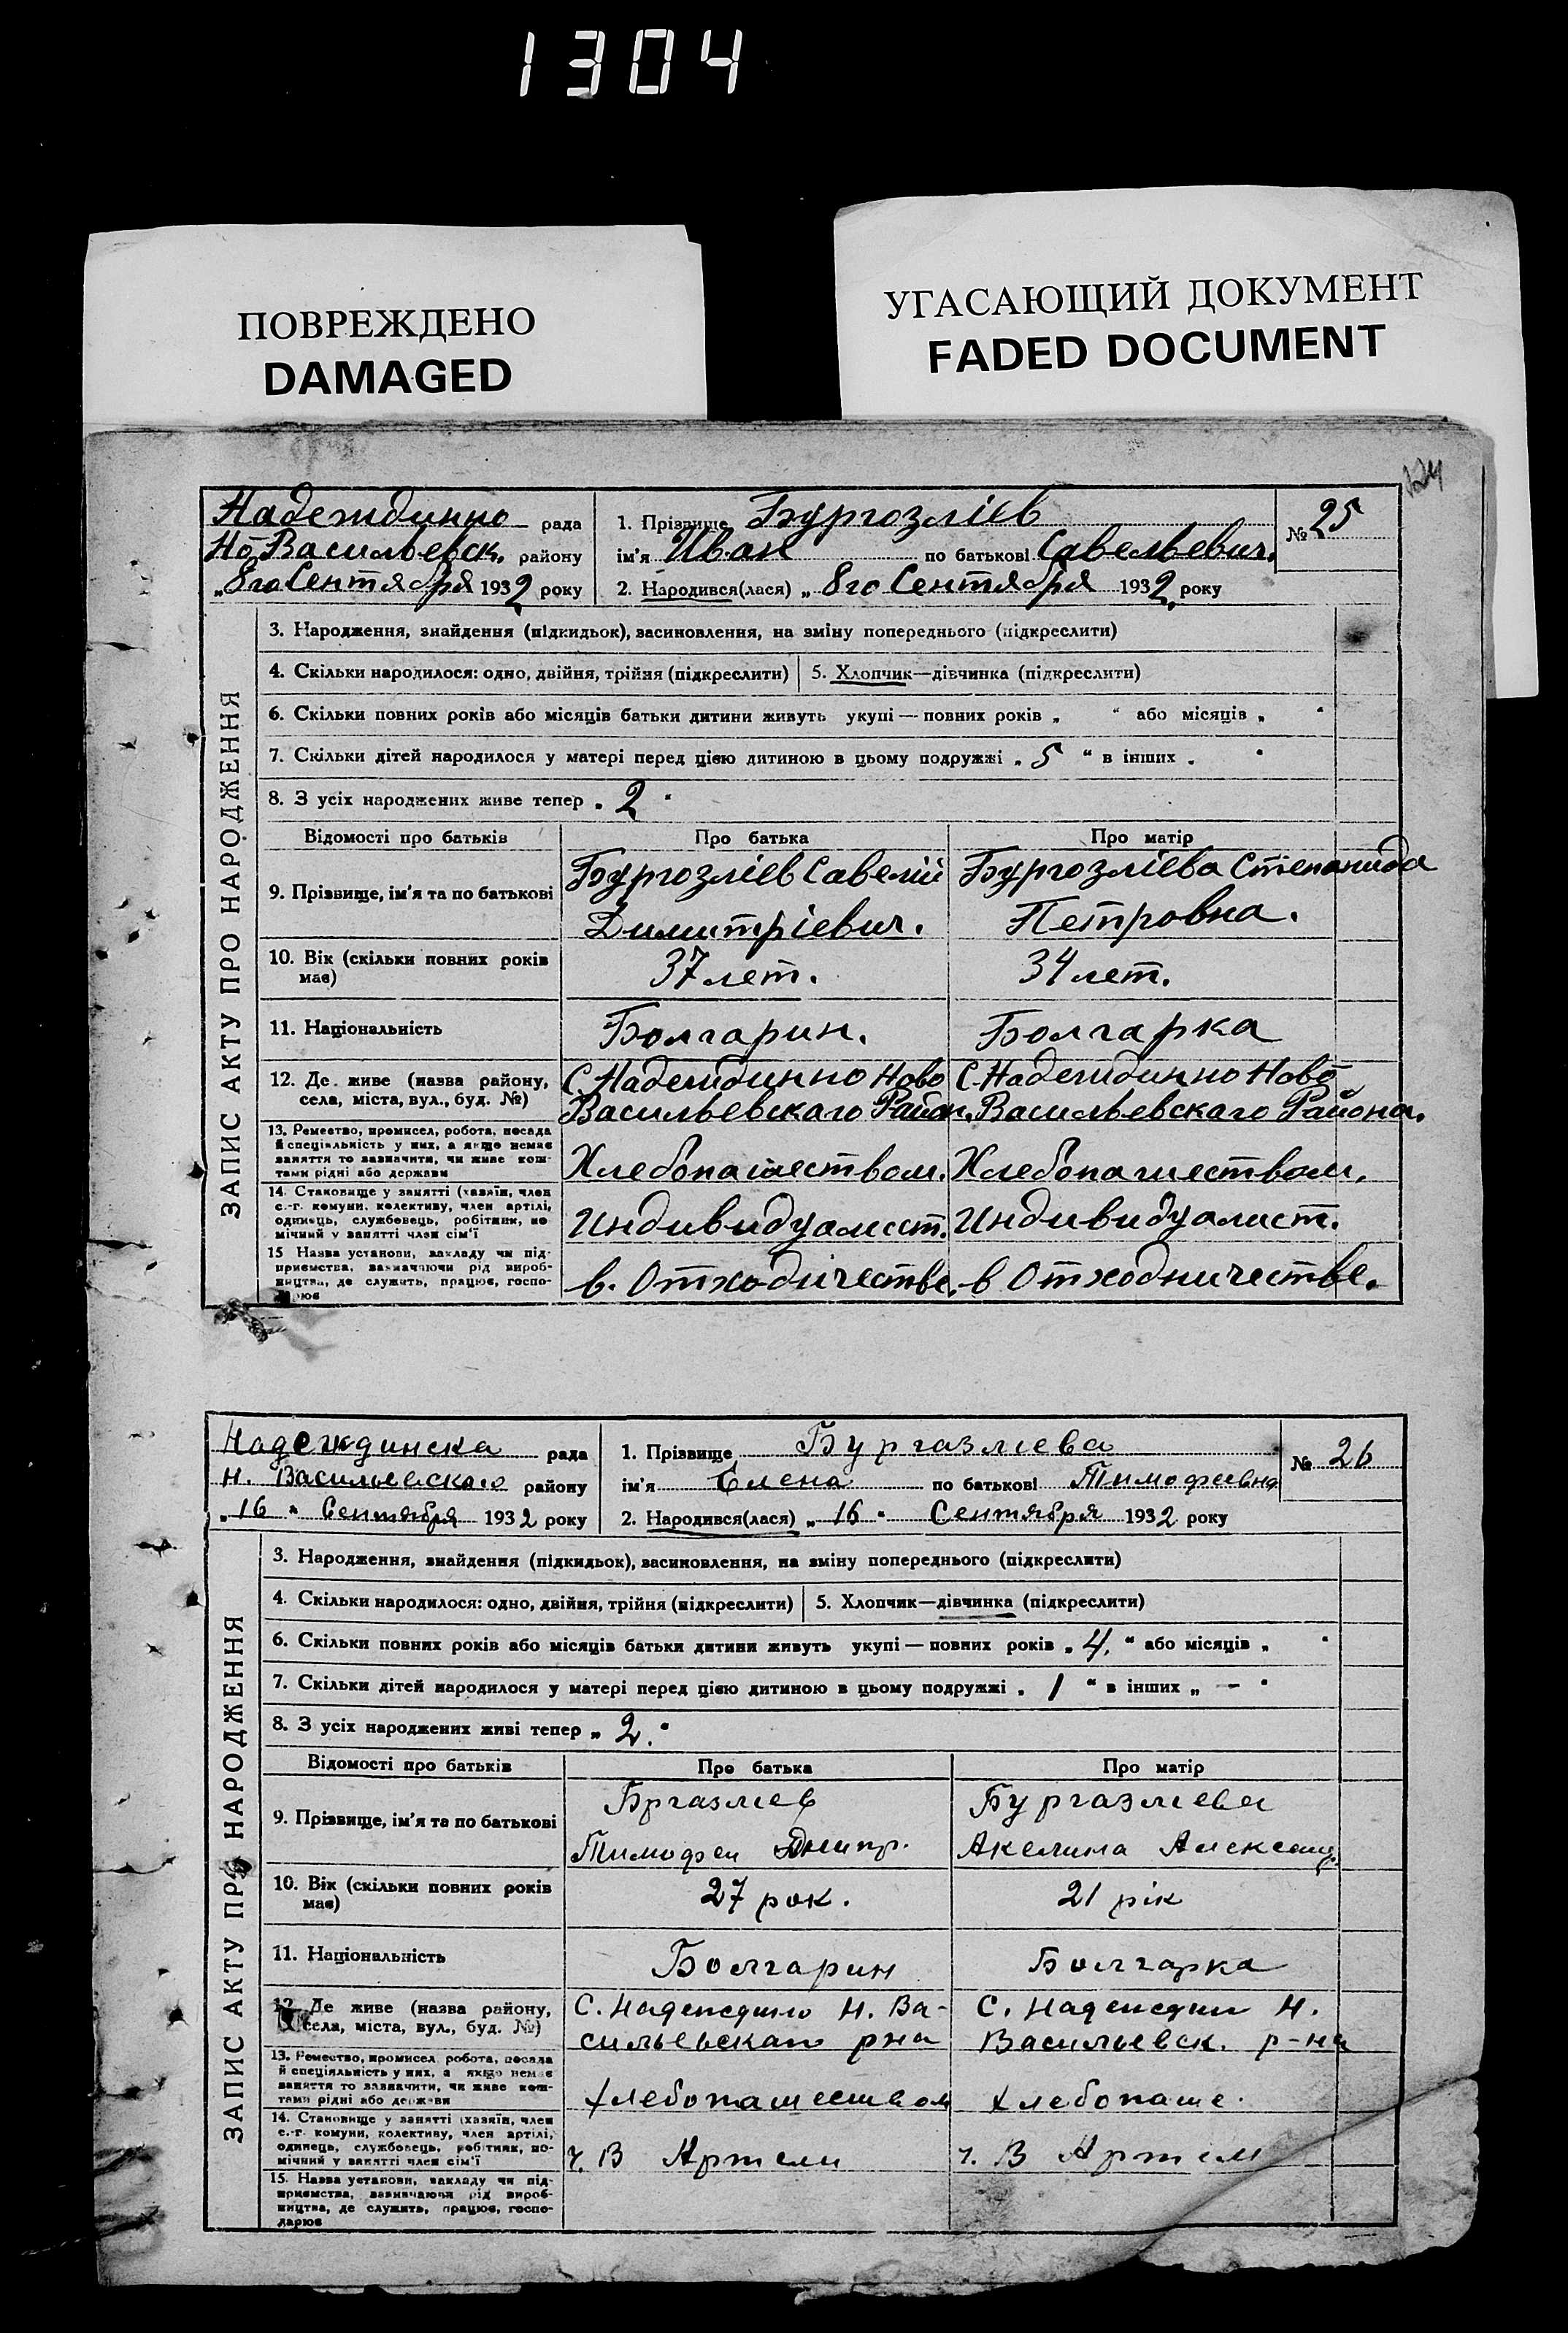 1304
ПОВРЕЖДЕНО
DAMAGED
УГАСАЮЩИЙ ДОКУМЕНТ
FADED DOCUMENT
124
Надеждинно рада
Но-Васильевск. району
„8го Сентября 1932 року
1. Прізвище Бургозліев
ім'я Иван по батькові Савельевич.
2. Народився(лася) „ 8го Сентября 1932 року
№ 25
ЗАПИС АКТУ ПРО НАРОДЖЕННЯ
3. Народження, знайдення (підкидьок), васиновлення, на зміну попереднього (підкреслити)
4. Скільки народилося: одно, двійня, трійня (підкреслити) 5. Хлопчик—дівчинка (підкреслити)
6. Скільки повних років або місяців батьки дитини живуть укупі — повних років „ “ або місяців „ “
7. Скільки дітей народилося у матері перед цією дитиною в цьому подружжі „ 5 “ в інших „ “
8. З усіх народжених живе тепер „ 2 “
Відомості про батьків Про батька Про матір
9. Прізвище, ім'я та по батькові
Бургозліев Савелій
Димитріевич.
Бургозліева Степанида
Петровна.
10. Вік (скільки повних років
має)
37 лет.
34 лет.
11. Національність Болгарин. Болгарка
12. Де живе (назва району,
села, міста, вул., буд. №)
С. Надеждинно Ново
Васильевскаго Район.
С. Надеждинно Ново
Васильевскаго Района.
13. Ремество, промисел, робота, посада
й спеціяльність у них, а якщо немає
заняття то зазначити, чи живе кош-
тами рідні або держави
Хлебопашеством. Хлебопашеством.
14. Становище у занятті (хазяїн, член
с.-г. комуни, колективу, член артілі,
одинець, службовець, робітник, по
мічний у занятті член сім'ї
Индивидуалист. Индивидуалист.
15 Назва установи, закладу чи під-
приємства, зазначаючи рід вироб-
ництва, де служить, працює, госпо-
дарює
в. Отходичестве. в Отходничестве.
Надеждинска рада
Н. Васильевского району
„ 16 “ Сентября 1932 року
1. Прізвище Бургазлиева
ім'я Елена по батькові Тимофеевна
2. Народився(лася) „ 16 “ Сентября 1932 року
№ 26
ЗАПИС АКТУ ПРО НАРОДЖЕННЯ
3. Народження, знайдення (підкидьок), васиновлення, на зміну попереднього (підкреслити)
4. Скільки народилося: одно, двійня, трійня (підкреслити) 5. Хлопчик—дівчинка (підкреслити)
6. Скільки повних років або місяців батьки дитини живуть укупі — повних років „ 4. “ або місяців „ “
7. Скільки дітей народилося у матері перед цією дитиною в цьому подружжі „ 1 “ в інших „ - “
8. З усіх народжених живі тепер „ 2. “
Відомості про батьків Про батька Про матір
9. Прізвище, ім'я та по батькові
Бргазлиев
Тимофей Дмитр.
Бургазлиева
Акелина Александ.
10. Вік (скільки повних років
має)
27 рок.
21 рік
11. Національність Болгарин Болгарка
12. Де живе (назва району,
села, міста, вул., буд. №)
С. Надеждино Н. Ва-
сильевскаго рна
С. Надеждин Н.
Васильевск. р-на
13. Ремество, промисел, робота, посада
й спеціяльність у них, а якщо немає
заняття то зазначити, чи живе кош-
тами рідні або держави
Хлебопашеством Хлебопаше.
14. Становище у занятті (хазяїн, член
с.-г. комуни, колективу, член артілі,
одинець, службовець, робітник, по-
мічний у занятті член сім'ї
ч. В Артели ч. В Артели
15. Назва установи, закладу чи під-
приємства, зазначаючи рід вироб-
ництва, де служить, працює, госпо-
дарює